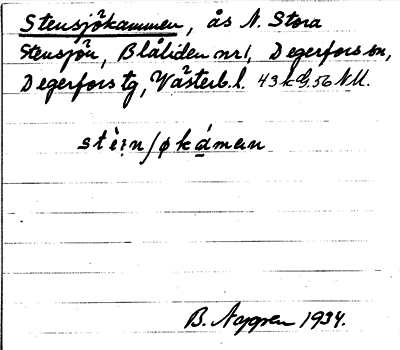 Stensjökammen, ås N. Stora
Stensjön, Blåliden nr 1, Degerfors sn,
Degerfors tg, Västerb. l. 43 k G. 56 N.U.
stè:nʃøkáman
B. Nygren 1934.